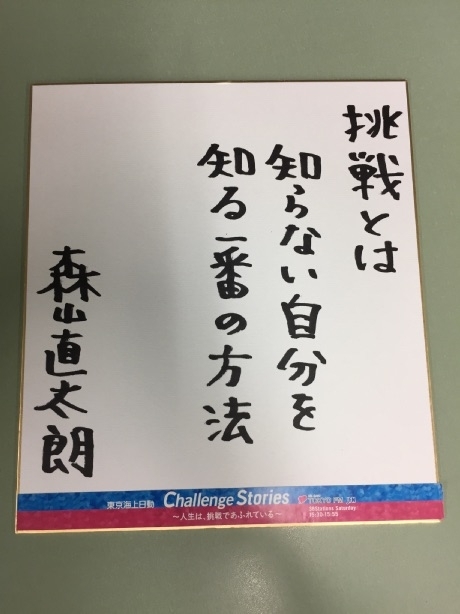 挑戦とは
知らない自分を
知る一番の方法
森山直太朗
東京海上日動 Challenge Stories
～人生は、挑戦であふれている～
TOKYO FM
38Stations Saturday